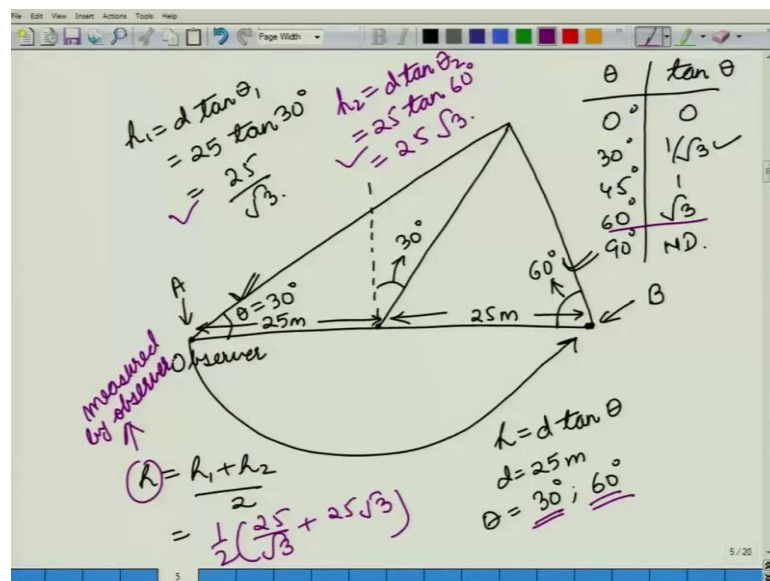 File Edit View Insert Actions Tools Help
Page Width
h₁ = d tan θ₁
= 25 tan 30°
= 25/√3.
h₂ = d tan θ₂
= 25 tan 60°
= 25 √3.
θ tan θ
0° 0
30° 1/√3
45° 1
60° √3
90° N.D.
30°
60°
A
θ = 30°
25m
25m
B
Observer
measured
by observer
h = h₁ + h₂ / 2
= 1/2 (25/√3 + 25√3)
h = d tan θ
d = 25 m
θ = 30° ; 60°
5 / 20
5